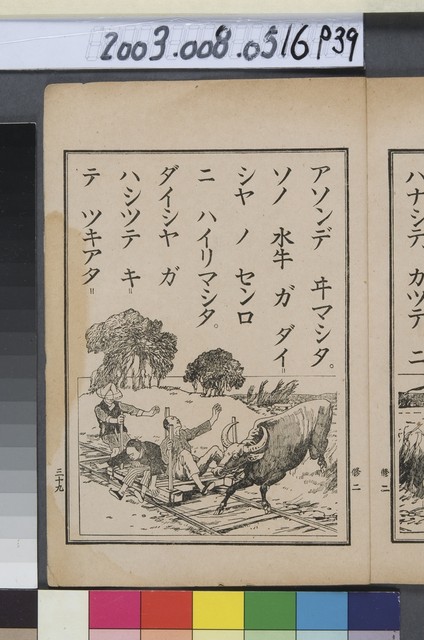 2003.008.0516 P39
ハナシテ カツテ ニ
アソンデ ヰマシタ。
ソノ 水牛 ガ ダイ＝
シヤ ノ センロ
ニ ハイリマシタ。
ダイシヤ ガ
ハシツテ キ＝
テ ツキアタ＝
修 二
修 二
三十九